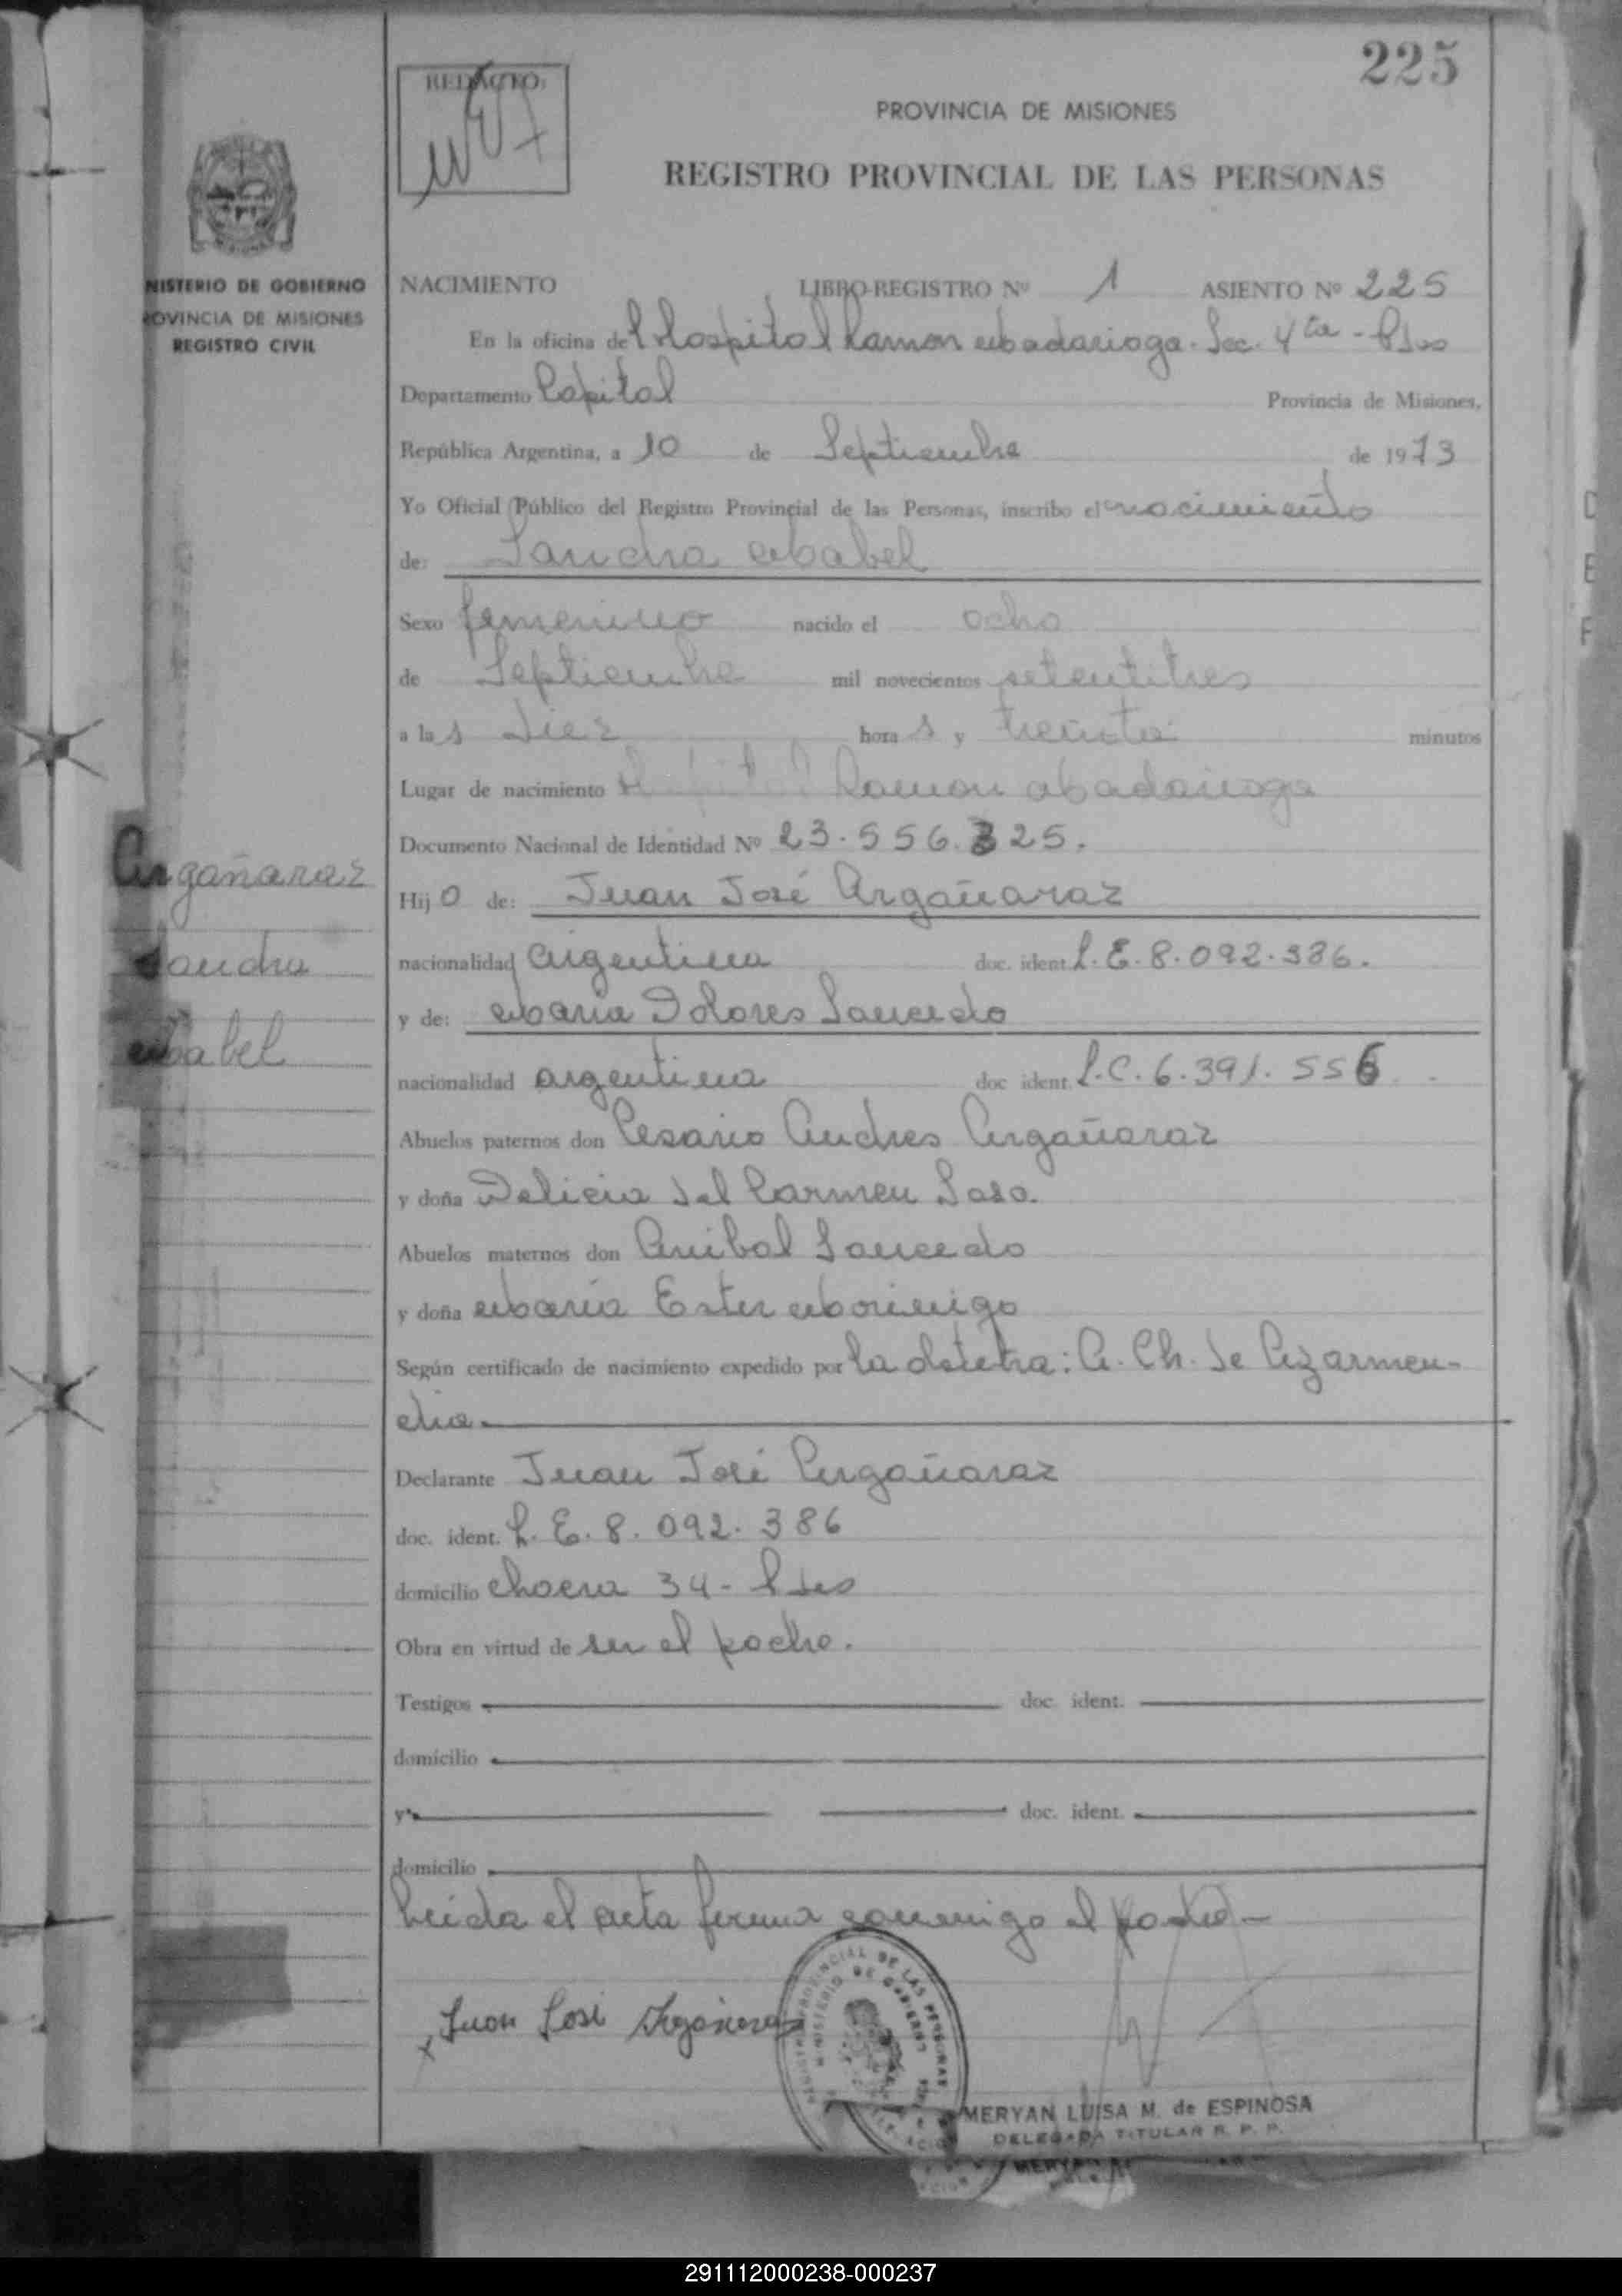 225
REDACTO:
PROVINCIA DE MISIONES
REGISTRO PROVINCIAL DE LAS PERSONAS
NISTERIO DE GOBIERNO
ROVINCIA DE MISIONES
REGISTRO CIVIL
NACIMIENTO LIBRO-REGISTRO Nº 1 ASIENTO Nº 225
En la oficina del Hospital Ramon Madariaga. Sec. 4ta - Pdas
Departamento Capital Provincia de Misiones,
República Argentina, a 10 de Septiembre de 1973
Yo Oficial Público del Registro Provincial de las Personas, inscribo el nacimiento
de: Sandra Mabel
Sexo femenino nacido el ocho
de Septiembre mil novecientos setentitres
a las diez horas y treinta minutos
Lugar de nacimiento Hospital Ramon Madariaga
Documento Nacional de Identidad Nº 23.556.325.
Argañaraz
Sandra
Mabel
Hijo de: Juan José Argañaraz
nacionalidad argentina doc. ident. L.E. 8.092.386.
y de: Maria Dolores Saucedo
nacionalidad argentina doc ident. L.C. 6.391.556
Abuelos paternos don Cesario Andres Argañaraz
y doña Delicia del Carmen Saso.
Abuelos maternos don Anibal Saucedo
y doña María Ester Morinigo
Según certificado de nacimiento expedido por la obstetra: A. Ch. de Azarmen-
dia.
Declarante Juan José Argañaraz
doc. ident. L.E. 8.092.386
domicilio Chacra 34 - Pdas
Obra en virtud de ser el padre.
Testigos doc. ident.
domicilio
y doc. ident.
domicilio
Leida el acta firma conmigo el padre -
x Juan José Argañaraz
MERYAN LUISA M. de ESPINOSA
DELEGADA TITULAR R. P. P.
291112000238-000237